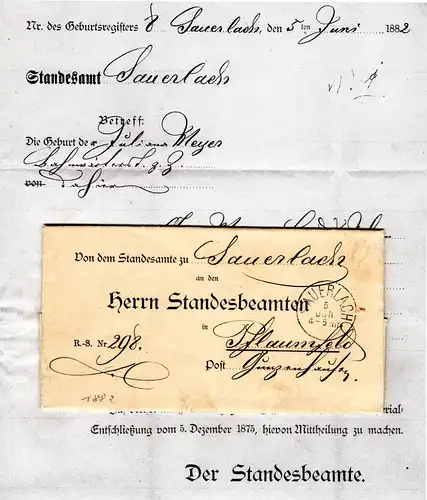 Nr. des Geburtsregisters 8 Sauerlach, den 5ten Juni 1882
Standesamt Sauerlach
Betreff:
Die Geburt der Juliana Meyer
von
Von dem Standesamte zu Sauerlach
an den
Herrn Standesbeamten
in
Pflaumfeld
R.-S. Nr. 298.
Post Gunzenhausen
SAUERLACH
5
JUN.
4-5 NM
1882
Entschließung vom 5. Dezember 1875, hievon Mittheilung zu machen.
Der Standesbeamte.